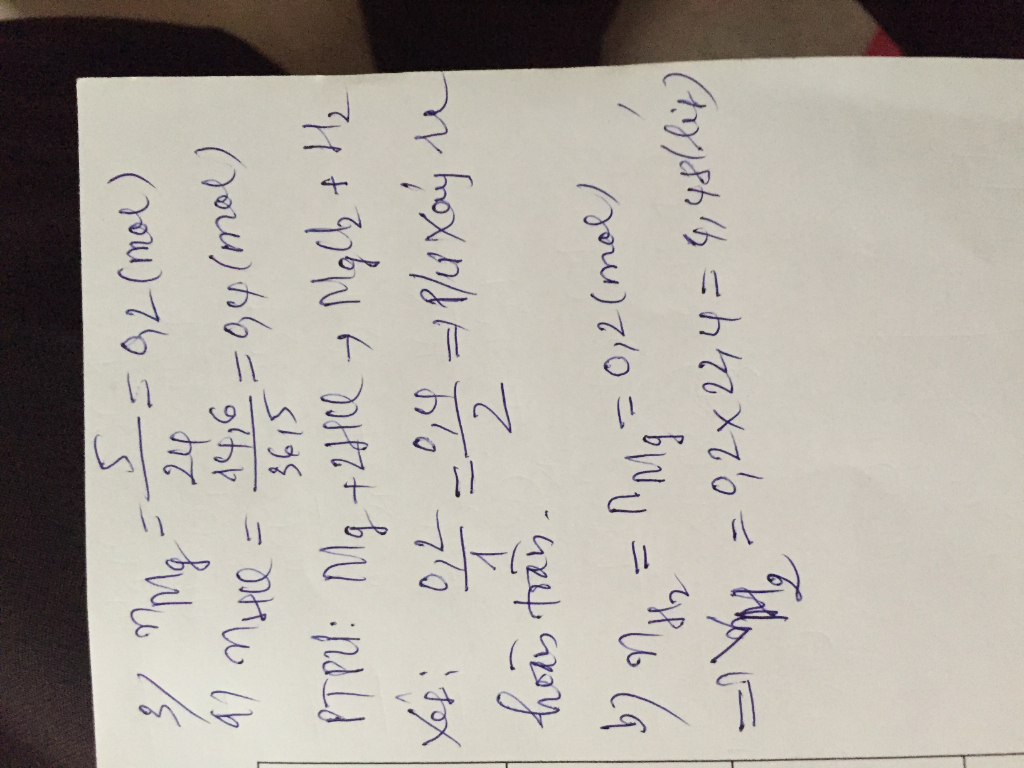 3/ nMg = 5/24 = 0,2 (mol)
a/ nHCl = 14,6/36,5 = 0,4 (mol)
PTPƯ: Mg + 2HCl → MgCl2 + H2
Xét: 0,2/1 = 0,4/2 => P/Ư xảy ra
hoàn toàn.
b) nH2 = nMg = 0,2 (mol)
=> = 0,2 x 22,4 = 4,48 (lít)